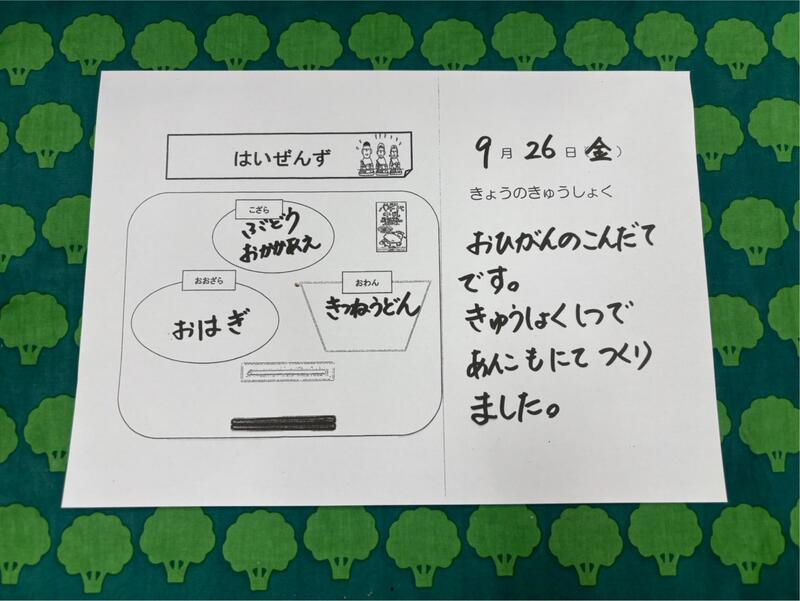 はいぜんず
こざら
ぶどう
おかかあえ
おおざら
おはぎ
おわん
きつねうどん
9月26日(金)
きょうのきゅうしょく
おひがんのこんだて
です。
きゅうしょくしつで
あんこもにてつくり
ました。